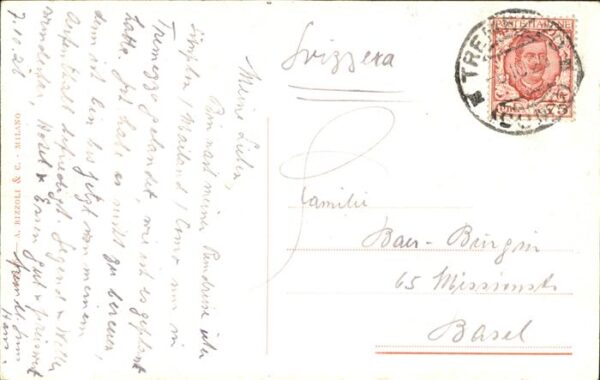 Meine Lieben,
Bin nach meiner Rundreise über
Simplon / Mailand / Como nur in
Tremezzo gelandet, wie ich es geplant
hatte. Ich habe es nicht zu bereuen,
denn ich bin bis jetzt von meinem
Aufenthalt befriedigt. Gegend & Wetter
wunderbar, Hotel & Essen gut & preiswert
7.10.26
Hans.
Svizzera
POSTE ITALIANE
TREMEZZO
COMO
Familie
Baer-Bürgin
65 Missionsstr
Basel
A. RIZZOLI & C. - MILANO